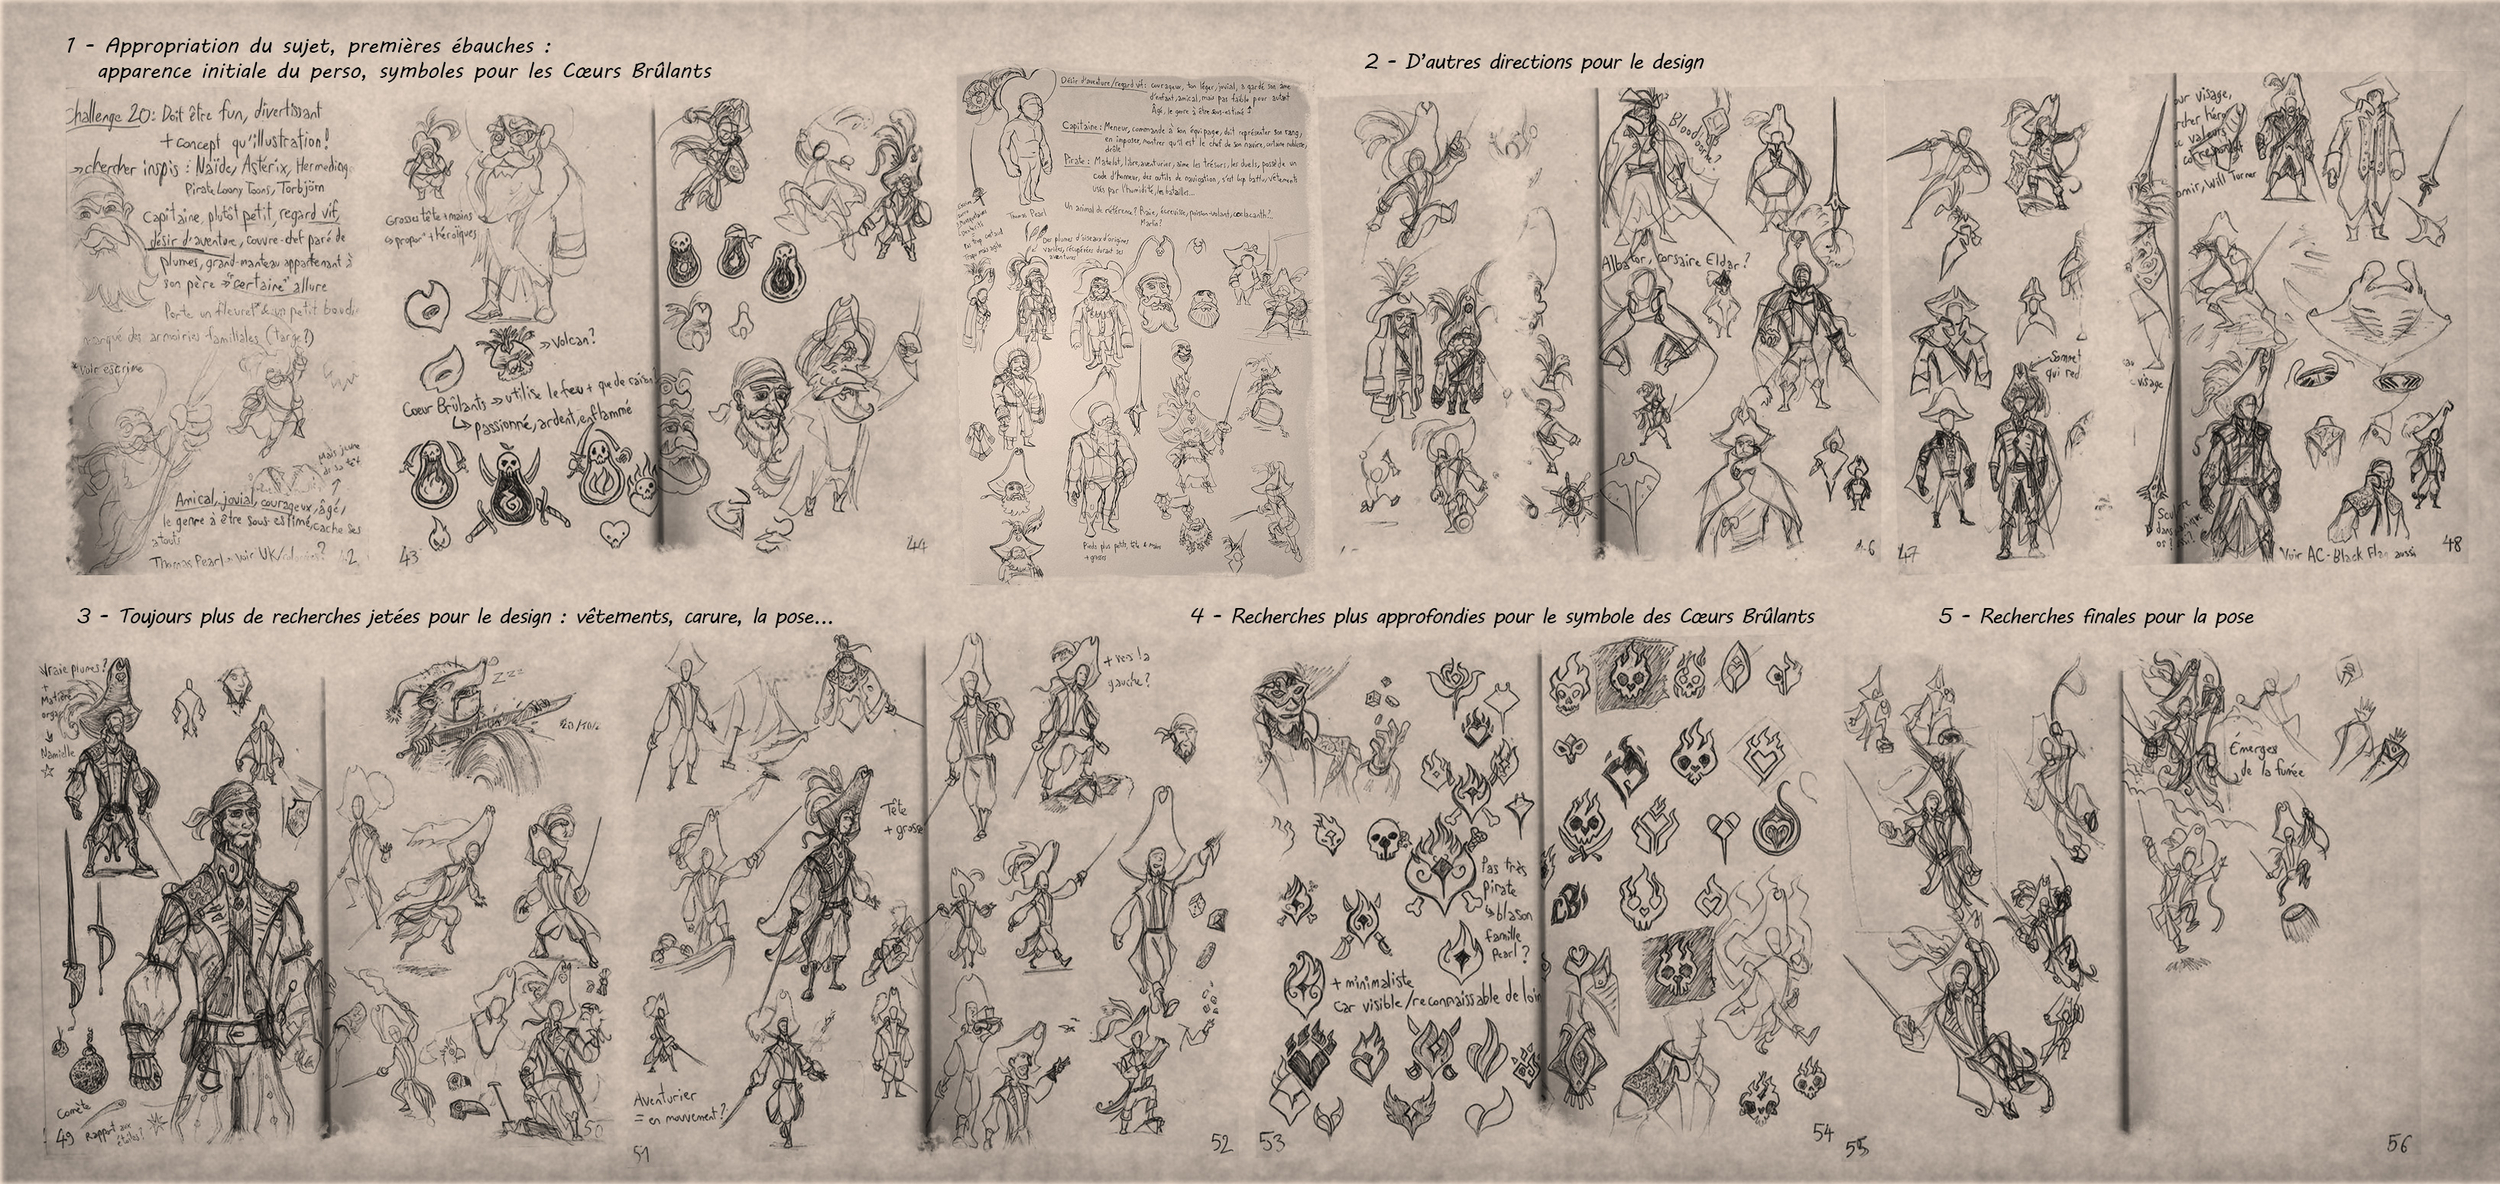 1 - Appropriation du sujet, premières ébauches :
apparence initiale du perso, symboles pour les Cœurs Brûlants
Challenge 20: Doit être fun, divertissant
+ concept qu'illustration!
→ chercher inspis : Naïde, Astérix, Hermeding
Pirate Loony Toons, Torbjörn
Capitaine, plutôt petit, regard vif,
désir d'aventure, couvre-chef paré de
plumes, grand-manteau appartenant à
son père → "certaine" allure
Porte un fleuret* & un petit boucli
marqué des armoiries familiales (Targe?)
*Voir escrime
Mais jeune
Amical, jovial, courageux, âgé,
le genre à être sous-estimé, cache ses
atouts
Thomas Pearl → voir UK 42
Grosses tête + mains
↳ propor° + héroïques
→ Volcan?
Cœur Brûlants → utilise le feu + que de raison
↳ passionné, ardent, enflammé
43
44
Désir d'aventure/regard vif : courageux, ton léger, jovial, a gardé son âme
d'enfant, amical, mais pas faible pour autant
Âgé, le genre à être sous-estimé
Capitaine : Meneur, commande à son équipage, doit représenter son rang,
en imposer, montrer qu'il est le chef de son navire, certaine noblesse,
drôle
Pirate : Matelot, libre, aventurier, aime les trésors, les duels, possède un
code d'honneur, des outils de navigation, s'est bcp battu, vêtements
usés par l'humidité, les batailles...
Un animal de référence? Raie, écrevisse, poisson-volant, cœlacanth?..
Marlin?
Thomas Pearl
Des plumes d'oiseaux d'origines
variées, récupérées durant ses
aventures
Pieds plus petits, tête & mains
+ grosses
2 - D'autres directions pour le design
Bloodborne?
Albator, corsaire Eldar?
6
47
our visage,
rcher héro
valeurs
correspondent
omir, Will Turner
Sommet
qui red
visage
Sculture
dans
os?
Voir AC-Black Flag aussi
48
3 - Toujours plus de recherches jetées pour le design : vêtements, carure, la pose...
Vraie plumes?
+
Matière
orga
Namielle
ZZZ
Comète
49
Rapport aux
étoiles?
50
Tête
+ grosse
Aventurier
= en mouvement?
51
+ vers la
gauche?
52
4 - Recherches plus approfondies pour le symbole des Cœurs Brûlants
Pas très
pirate
↳ blason
famille
Pearl?
+ minimaliste
car visible/reconnaissable de loin
53
CB
54
5 - Recherches finales pour la pose
Émerges
de la fumée
55
56